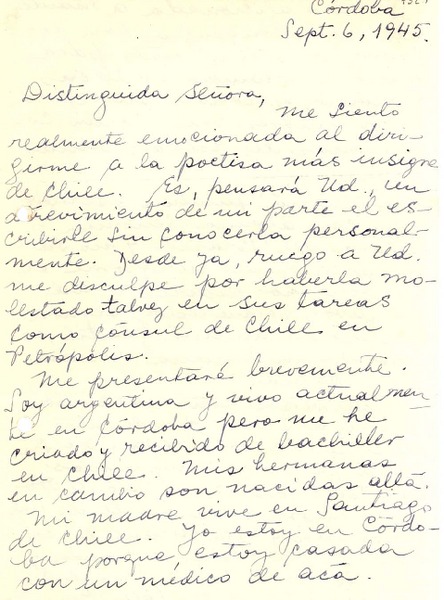 Córdoba
Sept. 6, 1945.
Distinguida Señora,
Me siento
realmente emocionada al diri-
girme a la poetisa más insigne
de Chile. Es, pensará Ud., un
atrevimiento de mi parte el es-
cribirle sin conocerla personal-
mente. Desde ya, ruego a Ud.
me disculpe por haberla mo-
lestado talvez en sus tareas
como Cónsul de Chile en
Petrópolis.
Me presentaré brevemente.
Soy argentina y vivo actualmen-
te en Córdoba pero me he
criado y recibido de bachiller
en Chile. Mis hermanas
en cambio son nacidas allá.
Mi madre vive en Santiago
de Chile. Yo estoy en Córdo-
ba porque estoy casada
con un médico de acá.